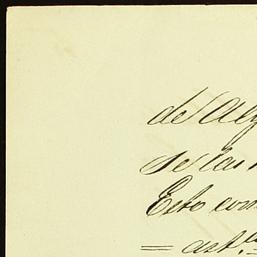 de Alg
se las
Esto com
= ast.